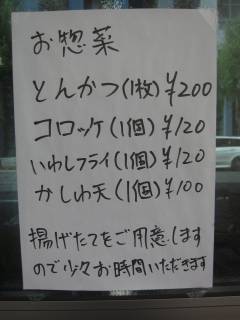 お惣菜
とんかつ(1枚)¥200
コロッケ(1個)¥120
いわしフライ(1個)¥120
かしわ天(1個)¥100
揚げたてをご用意します
ので少々お時間いただきます